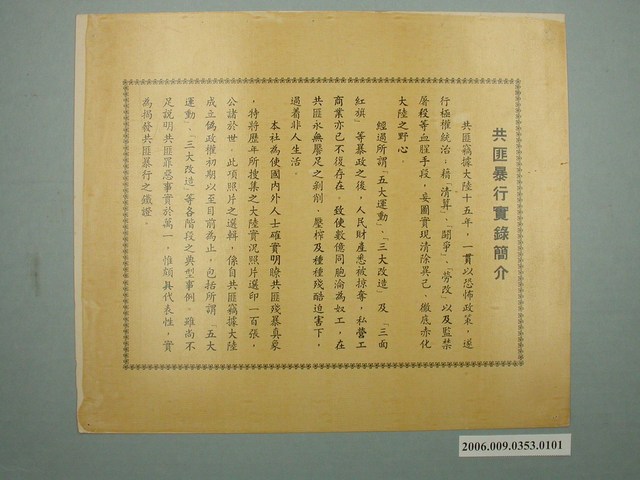 共匪暴行實錄簡介
共匪竊據大陸十五年，一貫以恐怖政策，遂
行極權統治；藉「清算」、「鬪爭」、「勞改」以及監禁
屠殺等血腥手段，妄圖實現清除異己、徹底赤化
大陸之野心。
經過所謂「五大運動」、「三大改造」及「三面
紅旗」等暴政之後，人民財產悉被掠奪，私營工
商業亦已不復存在。致使數億同胞淪為奴工，在
共匪永無饜足之剝削、壓榨及種種殘酷迫害下，
過着非人生活。
本社為使國內外人士確實明瞭共匪殘暴真象
，特將歷年所搜集之大陸實況照片選印一百張，
公諸於世。此項照片之選輯，係自共匪竊據大陸
成立偽政權初期以至目前為止，包括所謂「五大
運動」、「三大改造」等各階段之典型事例。雖尚不
足說明共匪罪惡事實於萬一，惟頗具代表性，實
為揭發共匪暴行之鐵證。
2006.009.0353.0101